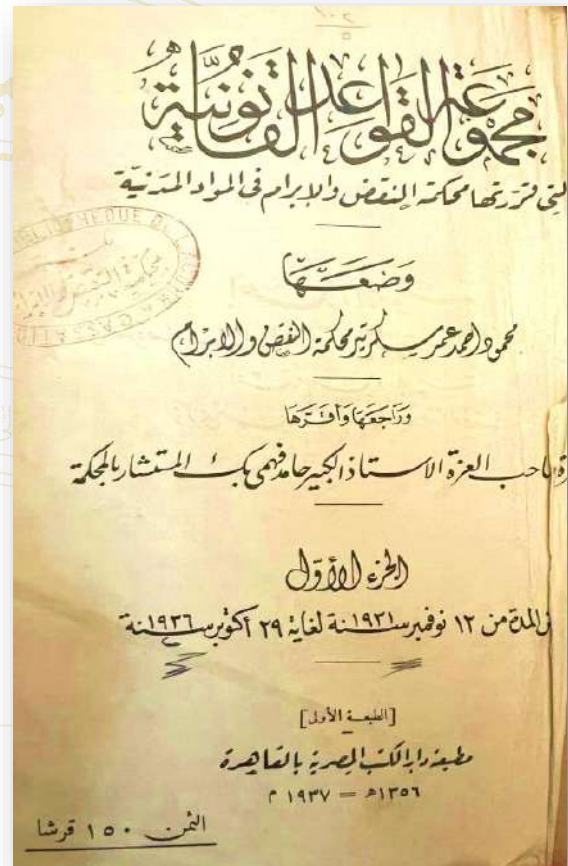 ١٠٢
٥
مجموعة القواعد القانونية
لتي قررتها محكمة النقض والإبرام في المواد المدنية
BIBLIOTHEQUE DE L
محكمة النقض والإبرام
CASSATIO
وضعها
محمود احمد عمر سكرتير محكمة النقض والابرام
وراجعها وأقرها
صاحب العزة الاستاذ الكبير حامد فهمى بك المستشار بالمحكمة
الجزء الأول
فى المدة من ١٢ نوفمبر سنة ١٩٣١ لغاية ٢٩ أكتوبر سنة ١٩٣٦
[الطبعة الأولى]
مطبعة دار الكتب المصرية بالقاهرة
١٣٥٦ هـ = ١٩٣٧ م
الثمن ١٥٠ قرشا